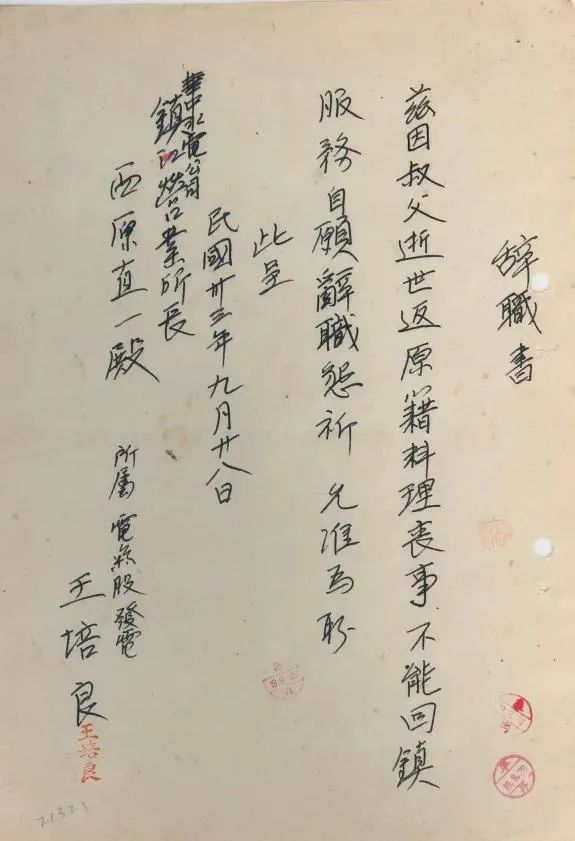 辞職書
茲因叔父逝世返原籍料理喪事不能回鎮
服務自願辭職懇祈 允准為盼
此呈
民國卅三年九月廿八日
華中水電公司
鎮江營業所長
西原直一殿
所屬 電氣股發電
王培良
王培良
21321